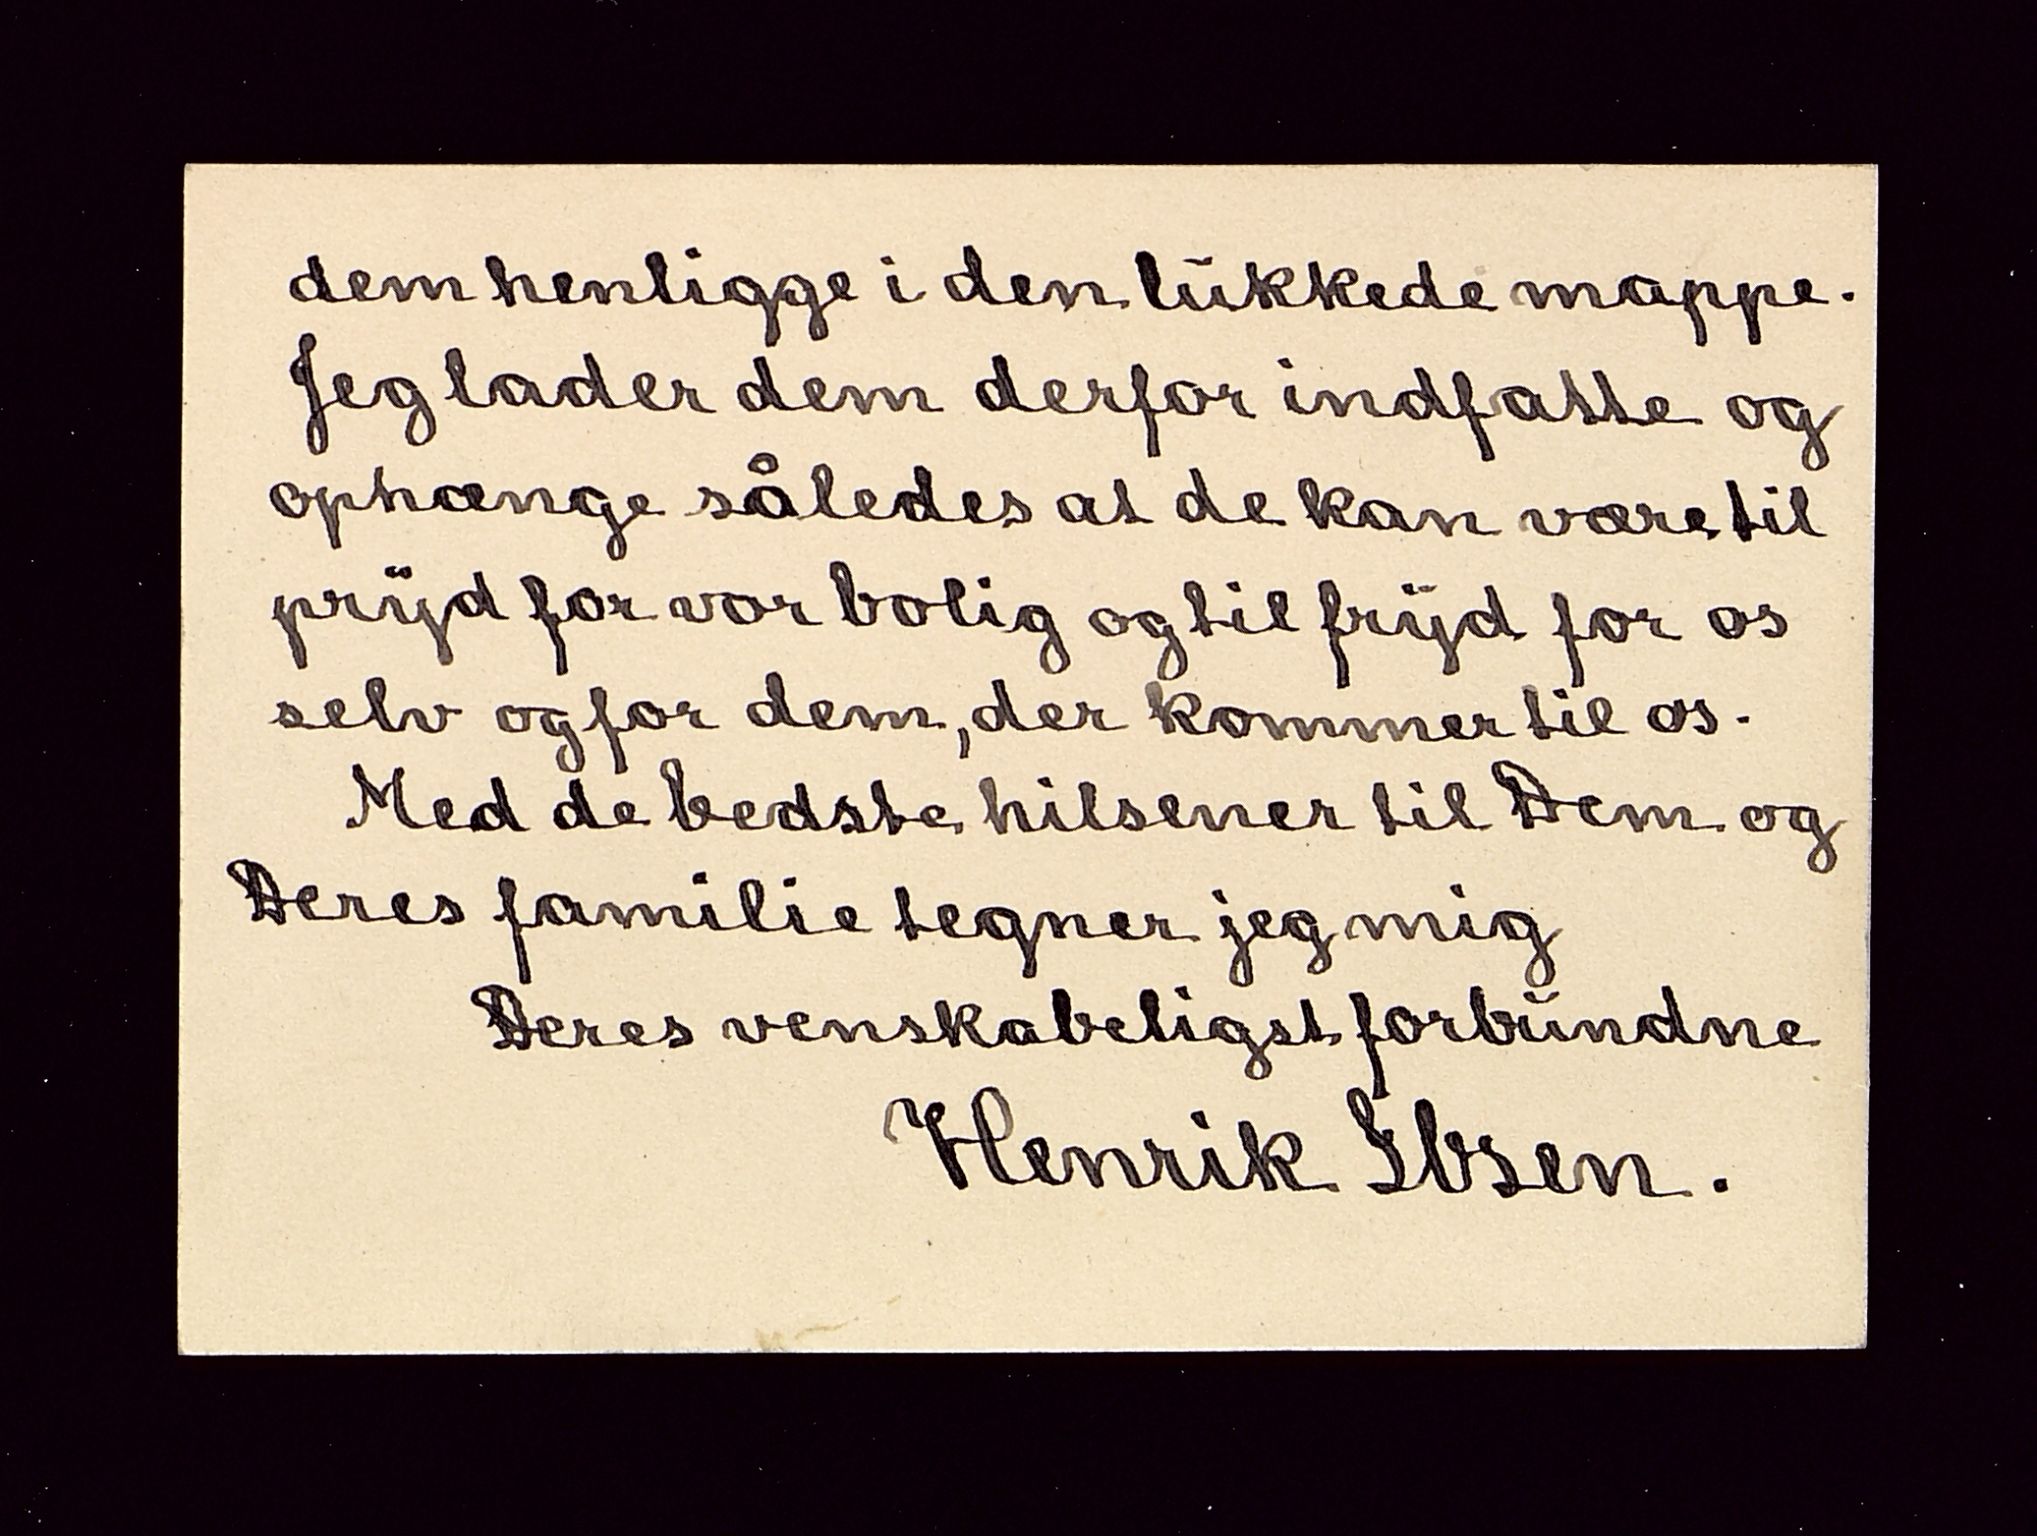 dem henligge i den lukkede mappe.
Jeg lader dem derfor indfatte og
ophænge således at de kan være til
pryd for vor bolig og til fryd for os
selv og for dem, der kommer til os.
Med de bedste hilsener til Dem og
Deres familie tegner jeg mig
Deres venskabeligst forbundne
Henrik Ibsen.